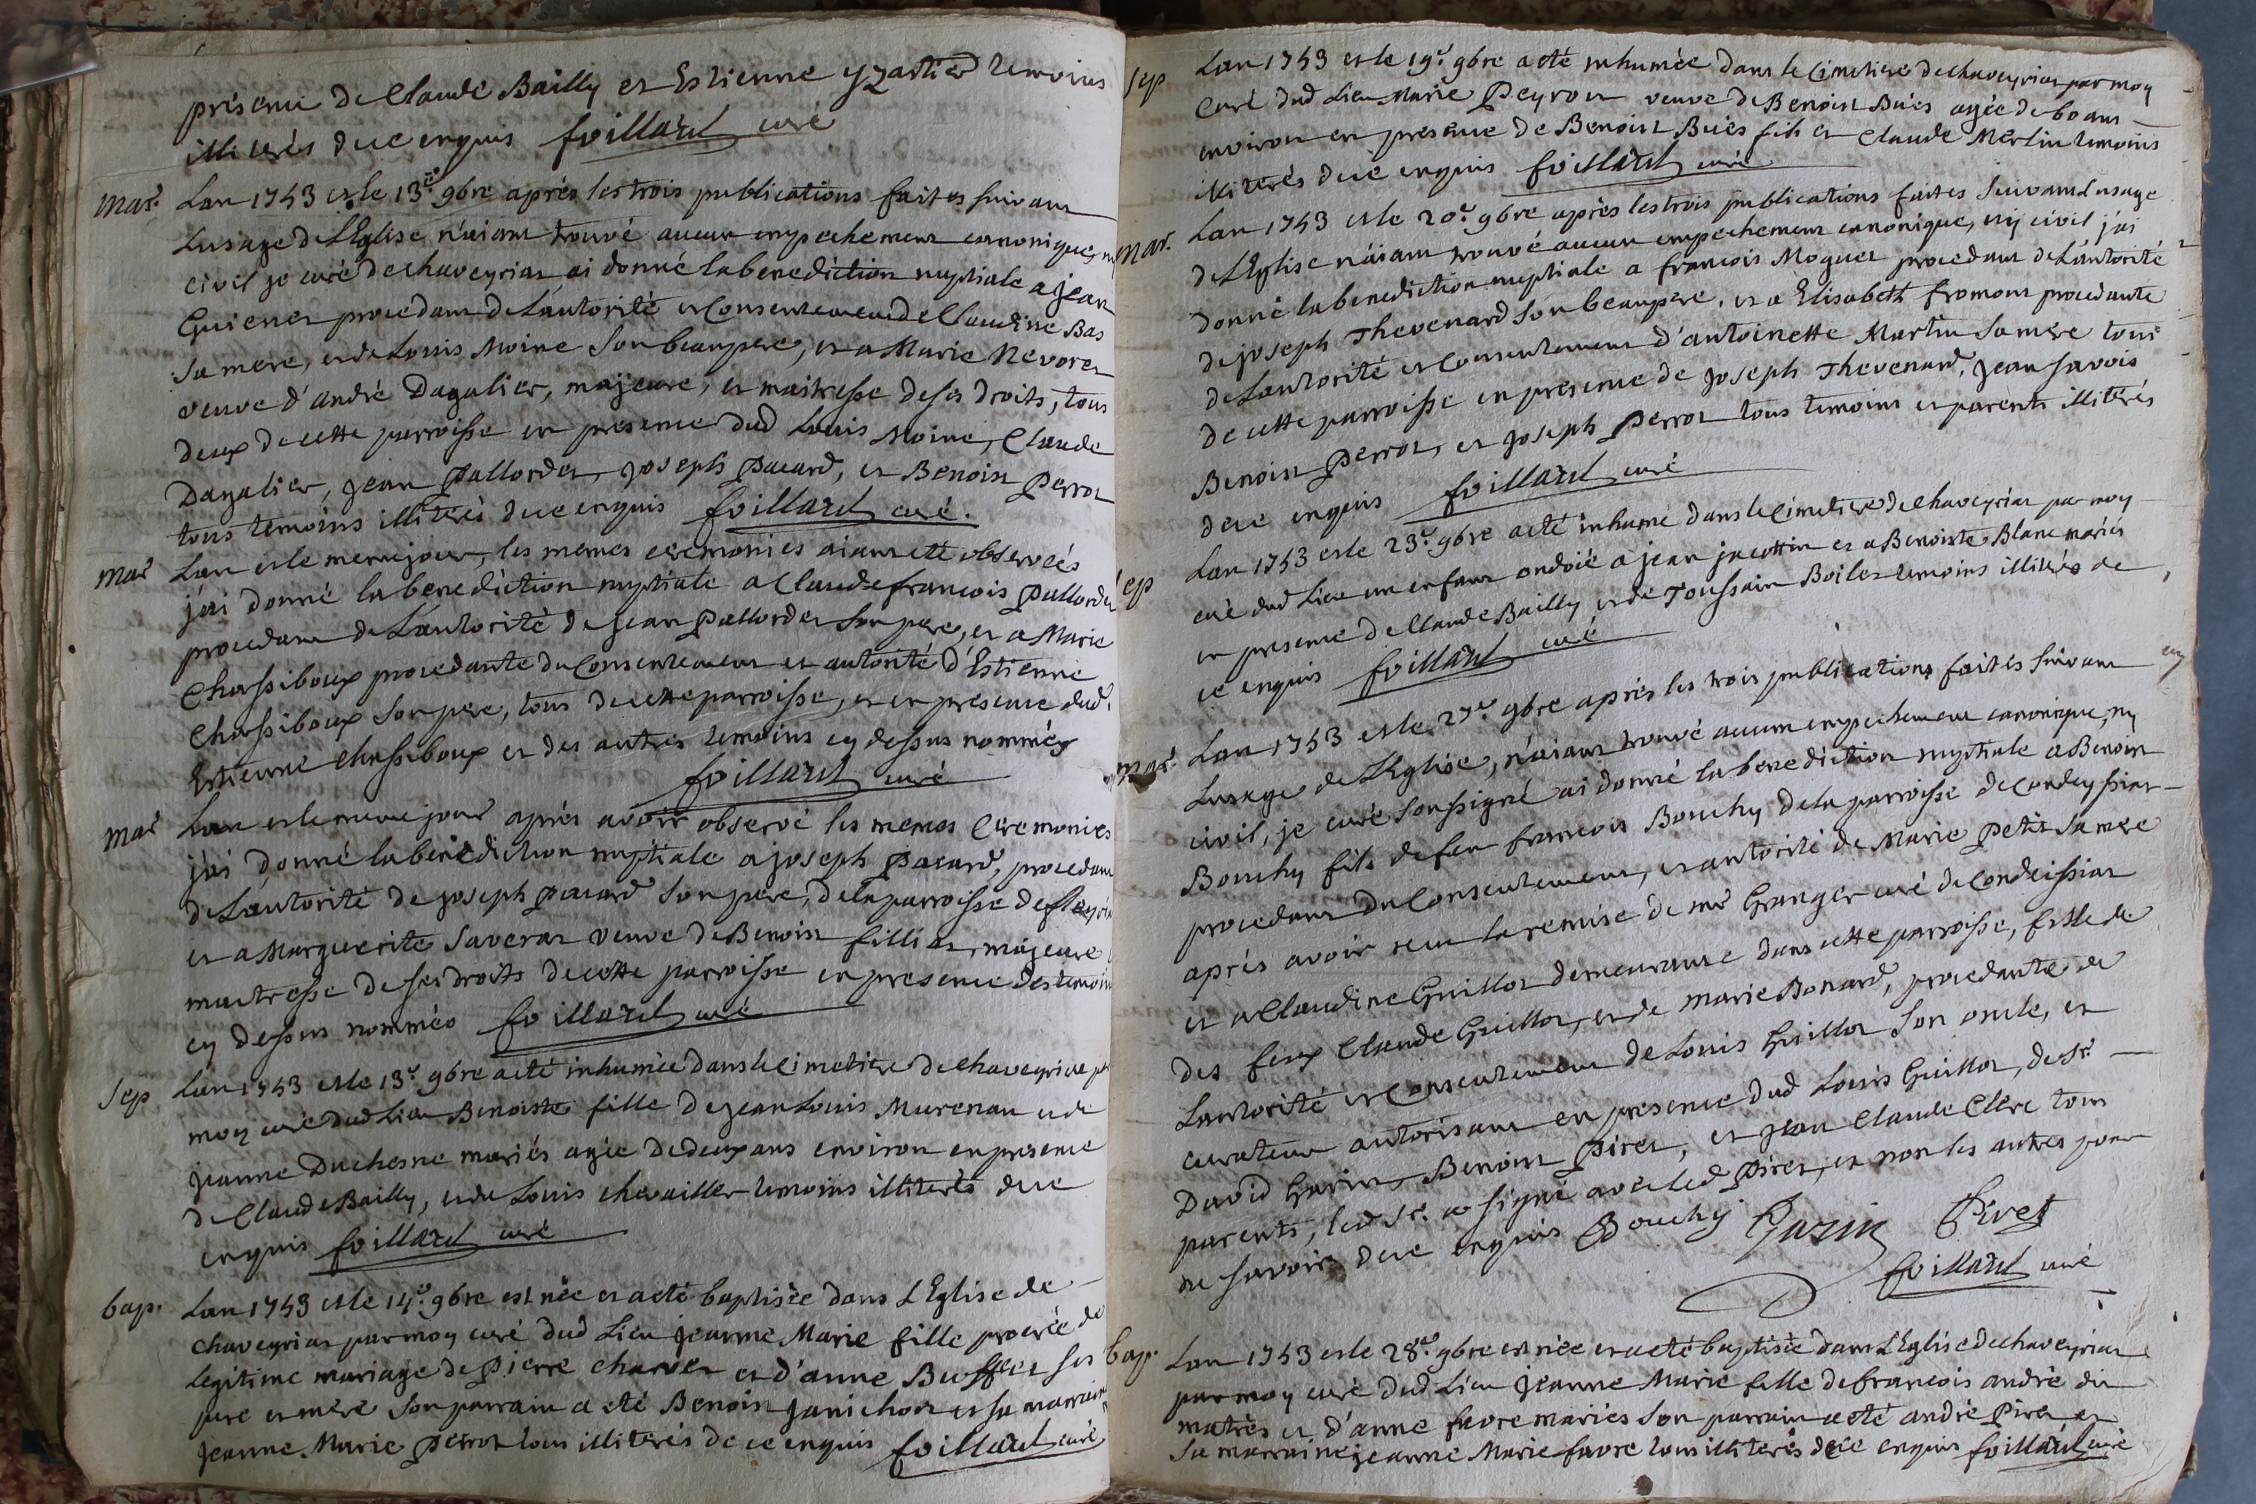 présence de Claude Bailly et Estienne yzartier temoins
illiterés de ce enquis foillard curé
mar. Lan 1753 et le 13e. 9bre après les trois publications faites suivant
Lusage de L'Eglise n'aiant trouvé aucun empechement canonique, ny
civil je curé de chaveyriat ai donné la benediction nuptiale a jean
Guienet procedant de L'autorité et Consentement de Claudine Bas
sa mere, et de Louis Moine son beaupere, et a Marie Nevoret
veuve d'andré Dagalier, majeure, et maitresse de ses droits, tous
deux de cette parroisse en presence dud Louis Moine, Claude
Dagalier, jean Pallordet, joseph Pacard, et Benoist Perrot
tous temoins illiterés de ce enquis foillard curé.
mar Lan et le meme jour, les memes ceremonies aiant eté observées
j'ai donné la benediction nuptiale a Claude francois Pallordet
procedant de L'autorité de jean Pallordet son pere, et a Marie
Chassiboux procedante du Consentement et autorité d'Estienne
Chassiboux son pere, tous de cette parroisse, et en presence dud.
Estienne chassiboux et des autres temoins cy dessus nommés
foillard curé
mar Lan et le meme jour après avoir observé les memes Ceremonies
j'ai donné la benediction nuptiale a joseph Pacard, procedant
de L'autorité de joseph Pacard son pere, de la parroisse de
et a Marguerite Saverat veuve de Benoist filliat, majeure
maitresse de ses droits de cette parroisse en presence des temoins
cy dessus nommés foillard curé
sep Lan 1753 et le 13e 9bre a eté inhumée dans le Cimetiere de chaveyriat par
moy curé dud Lieu Benoiste fille de jean Louis Murenau et de
jeanne Duchesne mariés agée de deux ans environ en presence
de Claude Bailly, et de Louis chevaillier temoins illiterés de ce
enquis foillard curé
bap. Lan 1753 et le 14e. 9bre est née et a eté baptisée dans L'Eglise de
chaveyriat par moy curé dud Lieu jeanne Marie fille procrée de
legitime mariage de Pierre charvet et d'anne Buffet ses
pere et mere son parrain a eté Benoist janichon et sa marraine
jeanne Marie Perrot tous illiterés de ce enquis foillard curé
sep Lan 1753 et le 19e 9bre a eté inhumée dans le Cimetiere de chaveyriat par moy
Curé dud Lieu Marie Peyron veuve de Benoist Buès agée de 60 ans
environ en presence de Benoist Buès fils et Claude Merlin temoins
illiterés de ce enquis foillard curé
mar. Lan 1753 et le 20e 9bre après les trois publications faites suivant Lusage
de L'Eglise n'aiant trouvé aucun empechement canonique, ny civil j'ai
donné la benediction nuptiale a francois Moguet procedant de L'autorité
de joseph Thevenard son beaupere, et a Elisabeth fromont procedante
de L'autorité et Consentement d'antoinette Martin sa mere tous
de cette parroisse en presence de joseph Thevenard, jean savois
Benoist Perrot, et joseph Perrot tous temoins et parents illiterés
de ce enquis foillard curé
sep Lan 1753 et le 23e 9bre a eté inhumé dans le Cimetiere de chaveyriat par moy
curé dud Lieu un enfant ondoié a jean jacottin et a Benoiste Blanc mariés
en presence de Claude Bailly et de Toussain Boilet temoins illiterés de
ce enquis foillard curé
mar. Lan 1753 et le 27e 9bre après les trois publications faites suivant
Lusage de L'Eglise, n'aiant trouvé aucun empechement canonique, ny
civil, je curé soussigné ai donné la benediction nuptiale a Benoist
Bouchy fils de feu francois Bouchy de la parroisse de Condeyssiat
procedant du Consentement, et autorité de Marie Petit sa mere
après avoir recu la remise de mr Granger curé de Condeissiat
et a Claudine Guillot demeurante dans cette parroisse, fille de
des feux Claude Guillot, et de Marie Bonard, procedante de
L'autorité et Consentement de Louis Guillot son oncle, et
curateur autorisant en presence dud Louis Guillot, de Sr
David Garin, Benoist Piret, et jean Claude Clerc tous
parents, led sr. a signé avec led Piret, et non les autres pour
ne savoir de ce enquis Bouchy Garin Pivet
foillard curé
bap. Lan 1753 et le 28e. 9bre est née et a eté baptisée dans L'Eglise de chaveyriat
par moy curé dud Lieu jeanne Marie fille de francois andrè du
matrès et d'anne favre mariés son parrain a eté andrè Piret et
sa marraine jeanne Marie favre tous illiterés de ce enquis foillard curé